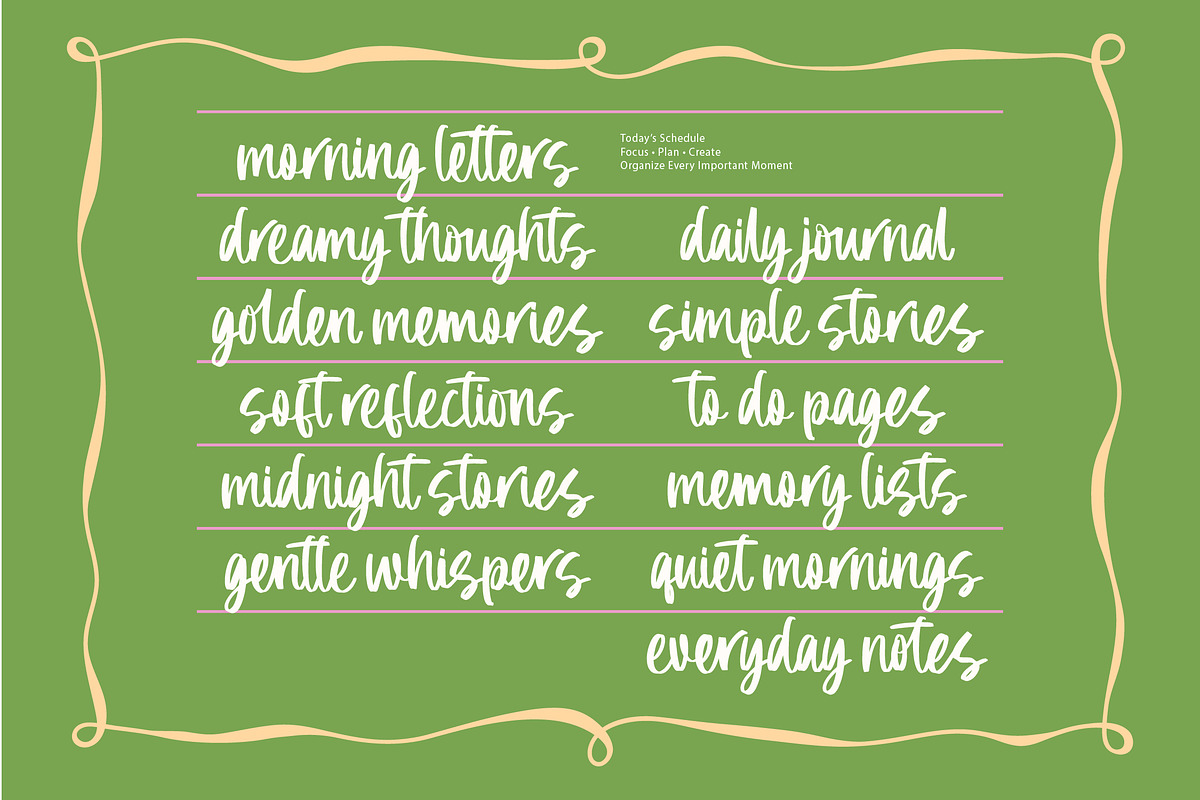 morning letters
dreamy thoughts
golden memories
soft reflections
midnight stories
gentle whispers
Today's Schedule
Focus • Plan • Create
Organize Every Important Moment
daily journal
simple stories
to do pages
memory lists
quiet mornings
everyday notes